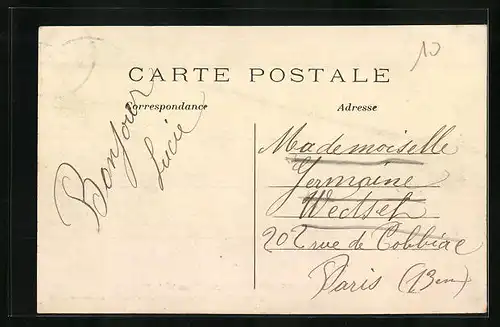 10
CARTE POSTALE
Correspondance
Adresse
Bonjour
Lucie
Mademoiselle
Germaine
202 rue de Tolbiac
Paris (13em)